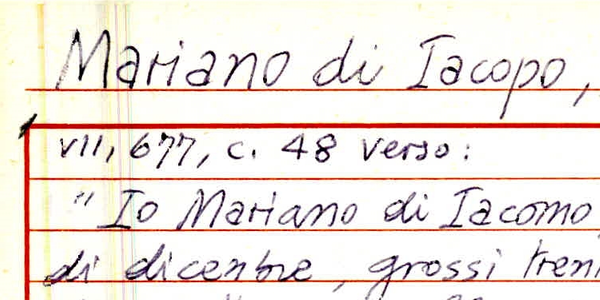 Mariano di Iacopo,
VII, 677, c. 48 verso:
"Io Mariano di Iacomo
di dicenbre, grossi